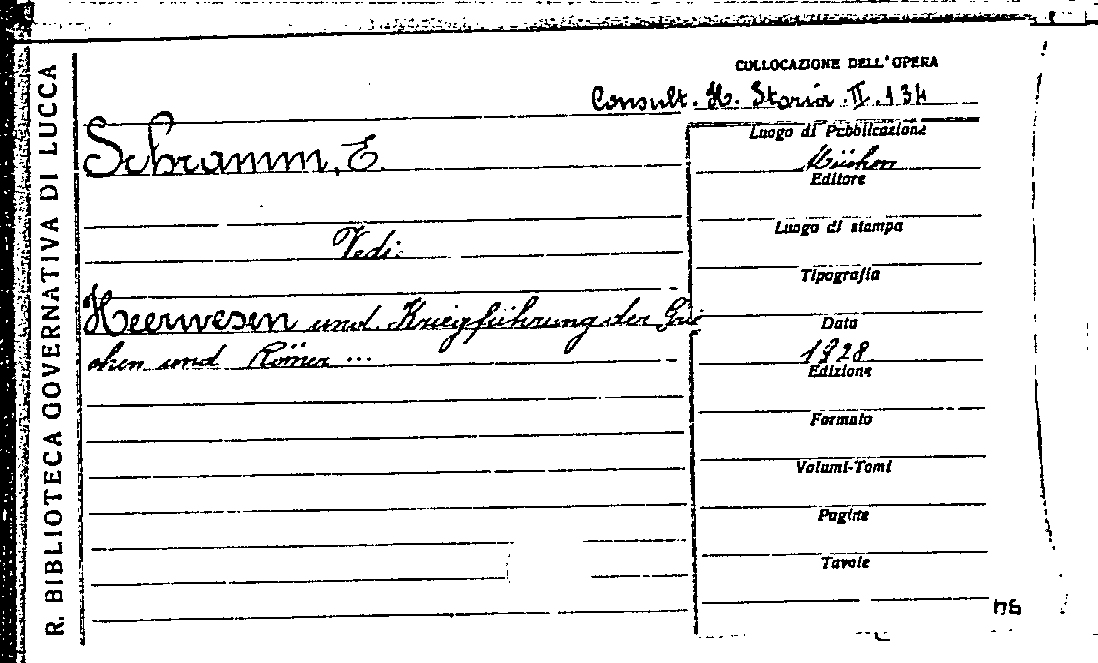 R. BIBLIOTECA GOVERNATIVA DI LUCCA
COLLOCAZIONE DELL'OPERA
Consult. H. Storia. II. 134
Schramm, E.
Vedi:
Heerwesen und Kriegführung der Grie
chen und Römer ...
Luogo di Pubblicazione
München
Editore
Luogo di stampa
Tipografia
Data
1928
Edizione
Formato
Volumi-Tomi
Pagine
Tavole